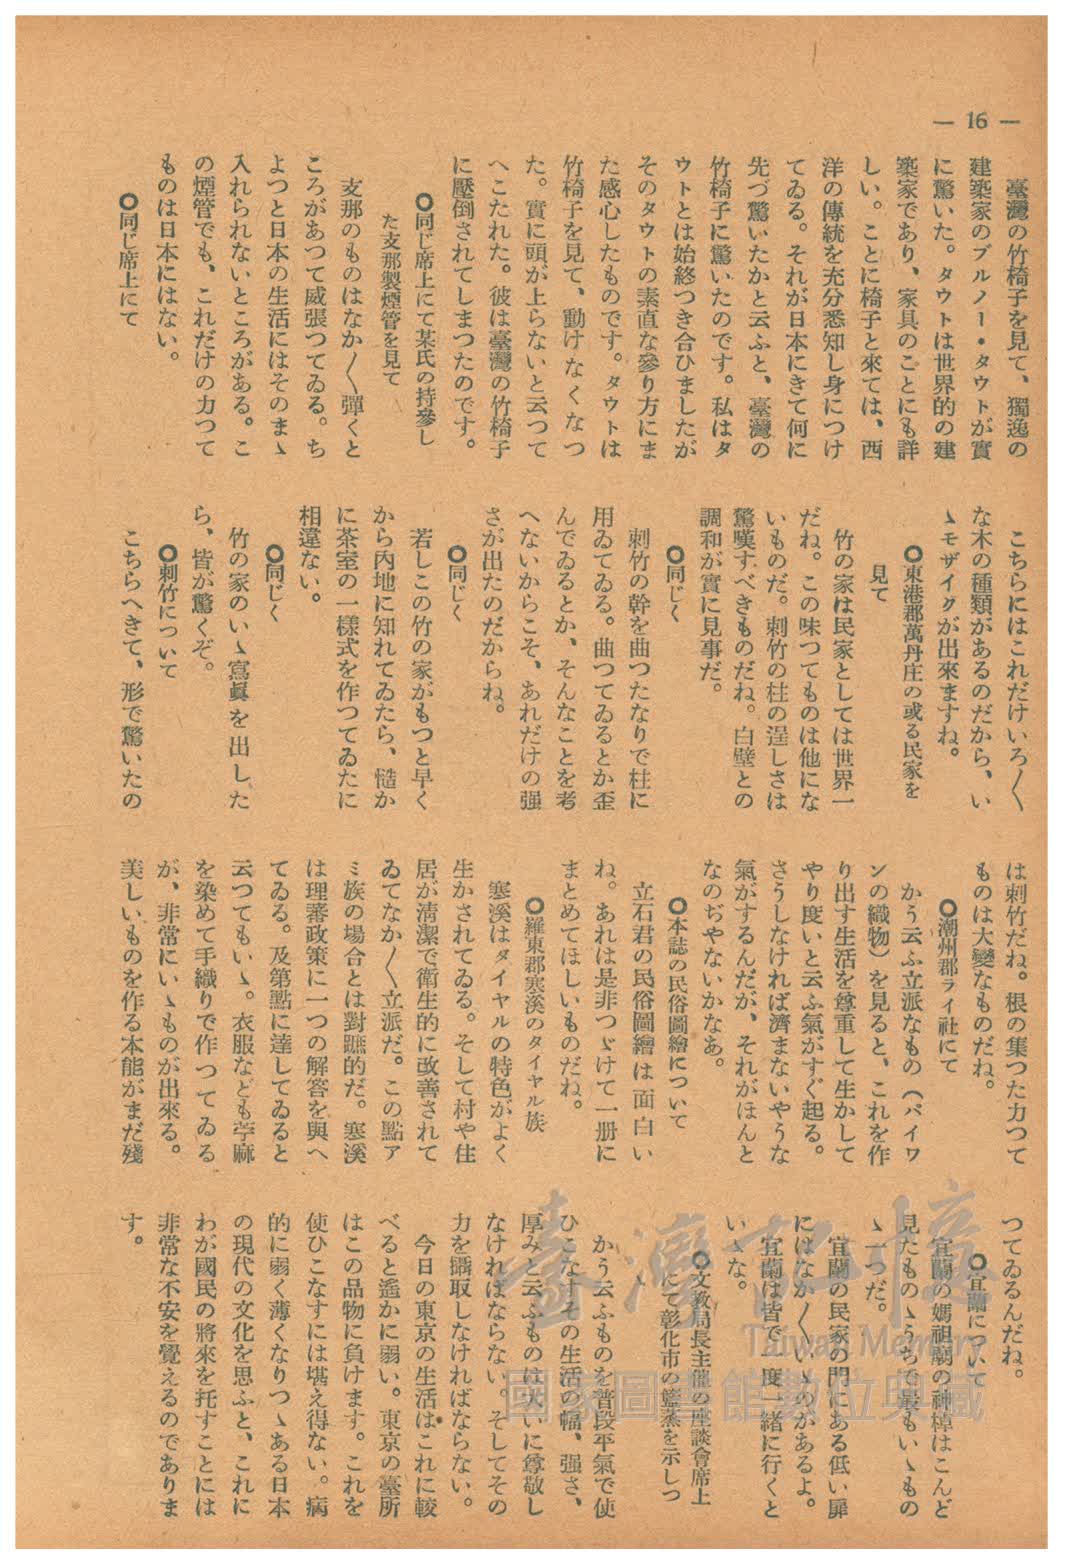 — 16 —
臺灣の竹椅子を見て、獨逸の
建築家のブルノー・タウトが實
に驚いた。タウトは世界的の建
築家であり、家具のことにも詳
しい。ことに椅子と來ては、西
洋の傳統を充分悉知し身につけ
てゐる。それが日本にきて何に
先づ驚いたかと云ふと、臺灣の
竹椅子に驚いたのです。私はタ
ウトとは始終つき合ひましたが
そのタウトの素直な參り方にま
た感心したものです。タウトは
竹椅子を見て、動けなくなつ
た。實に頭が上らないと云つて
へこたれた。彼は臺灣の竹椅子
に壓倒されてしまつたのです。
○同じ席上にて某氏の持參し
た支那製煙管を見て
支那のものはなか〳〵彈くと
ころがあつて威張つてゐる。ち
よつと日本の生活にはそのまゝ
入れられないところがある。こ
の煙管でも、これだけの力つて
ものは日本にはない。
○同じ席上にて
こちらにはこれだけいろ〳〵
な木の種類があるのだから、い
ゝモザイクが出來ますね。
○東港郡萬丹庄の或る民家を
見て
竹の家は民家としては世界一
だね。この味つてものは他にな
いものだ。刺竹の柱の逞しさは
驚嘆すべきものだね。白壁との
調和が實に見事だ。
○同じく
刺竹の幹を曲つたなりで柱に
用ゐてゐる。曲つてゐるとか歪
んでゐるとか、そんなことを考
へないからこそ、あれだけの强
さが出たのだからね。
○同じく
若しこの竹の家がもつと早く
から內地に知れてゐたら、慥か
に茶室の一樣式を作つてゐたに
相違ない。
○同じく
竹の家のいゝ寫眞を出した
ら、皆が驚くぞ。
○刺竹について
こちらへきて、形で驚いたの
は刺竹だね。根の集つた力つて
ものは大變なものだね。
○潮州郡ライ社にて
かう云ふ立派なもの（パイワ
ンの織物）を見ると、これを作
り出す生活を尊重して生かして
やり度いと云ふ氣がすぐ起る。
さうしなければ濟まないやうな
氣がするんだが、それがほんと
なのぢやないかなあ。
○本誌の民俗圖繪について
立石君の民俗圖繪は面白い
ね。あれは是非つゞけて一册に
まとめてほしいものだね。
○羅東郡寒溪のタイヤル族
寒溪はタイヤルの特色がよく
生かされてゐる。そして村や住
居が淸潔で衛生的に改善されて
ゐてなか〳〵立派だ。この點ア
ミ族の場合とは對蹠的だ。寒溪
は理蕃政策に一つの解答を與へ
てゐる。及第點に達してゐると
云つてもいゝ。衣服なども苧麻
を染めて手織りで作つてゐる
が、非常にいゝものが出來る。
美しいものを作る本能がまだ殘
つてゐるんだね。
○宜蘭について
宜蘭の媽祖廟の神棹はこんど
見たものゝうちで最もいゝもの
ゝ一つだ。
宜蘭の民家の門にある低い扉
にはなか〳〵いゝのがあるよ。
宜蘭は皆で一度一緖に行くと
いゝな。
○文敎局長主催の座談會席上
にて彰化市の籃蒸を示しつ
かう云ふものを普段平氣で使
ひこなすその生活の幅、强さ、
厚みと云ふものは大いに尊敬し
なければならない。そしてその
力を攝取しなければならない。
今日の東京の生活はこれに較
べると遙かに弱い。東京の臺所
はこの品物に負けます。これを
使ひこなすには堪え得ない。病
的に弱く薄くなりつゝある日本
の現代の文化を思ふと、これに
わが國民の將來を托すことには
非常な不安を覺えるのでありま
す。
臺灣記憶
Taiwan Memory
國家圖書館數位典藏